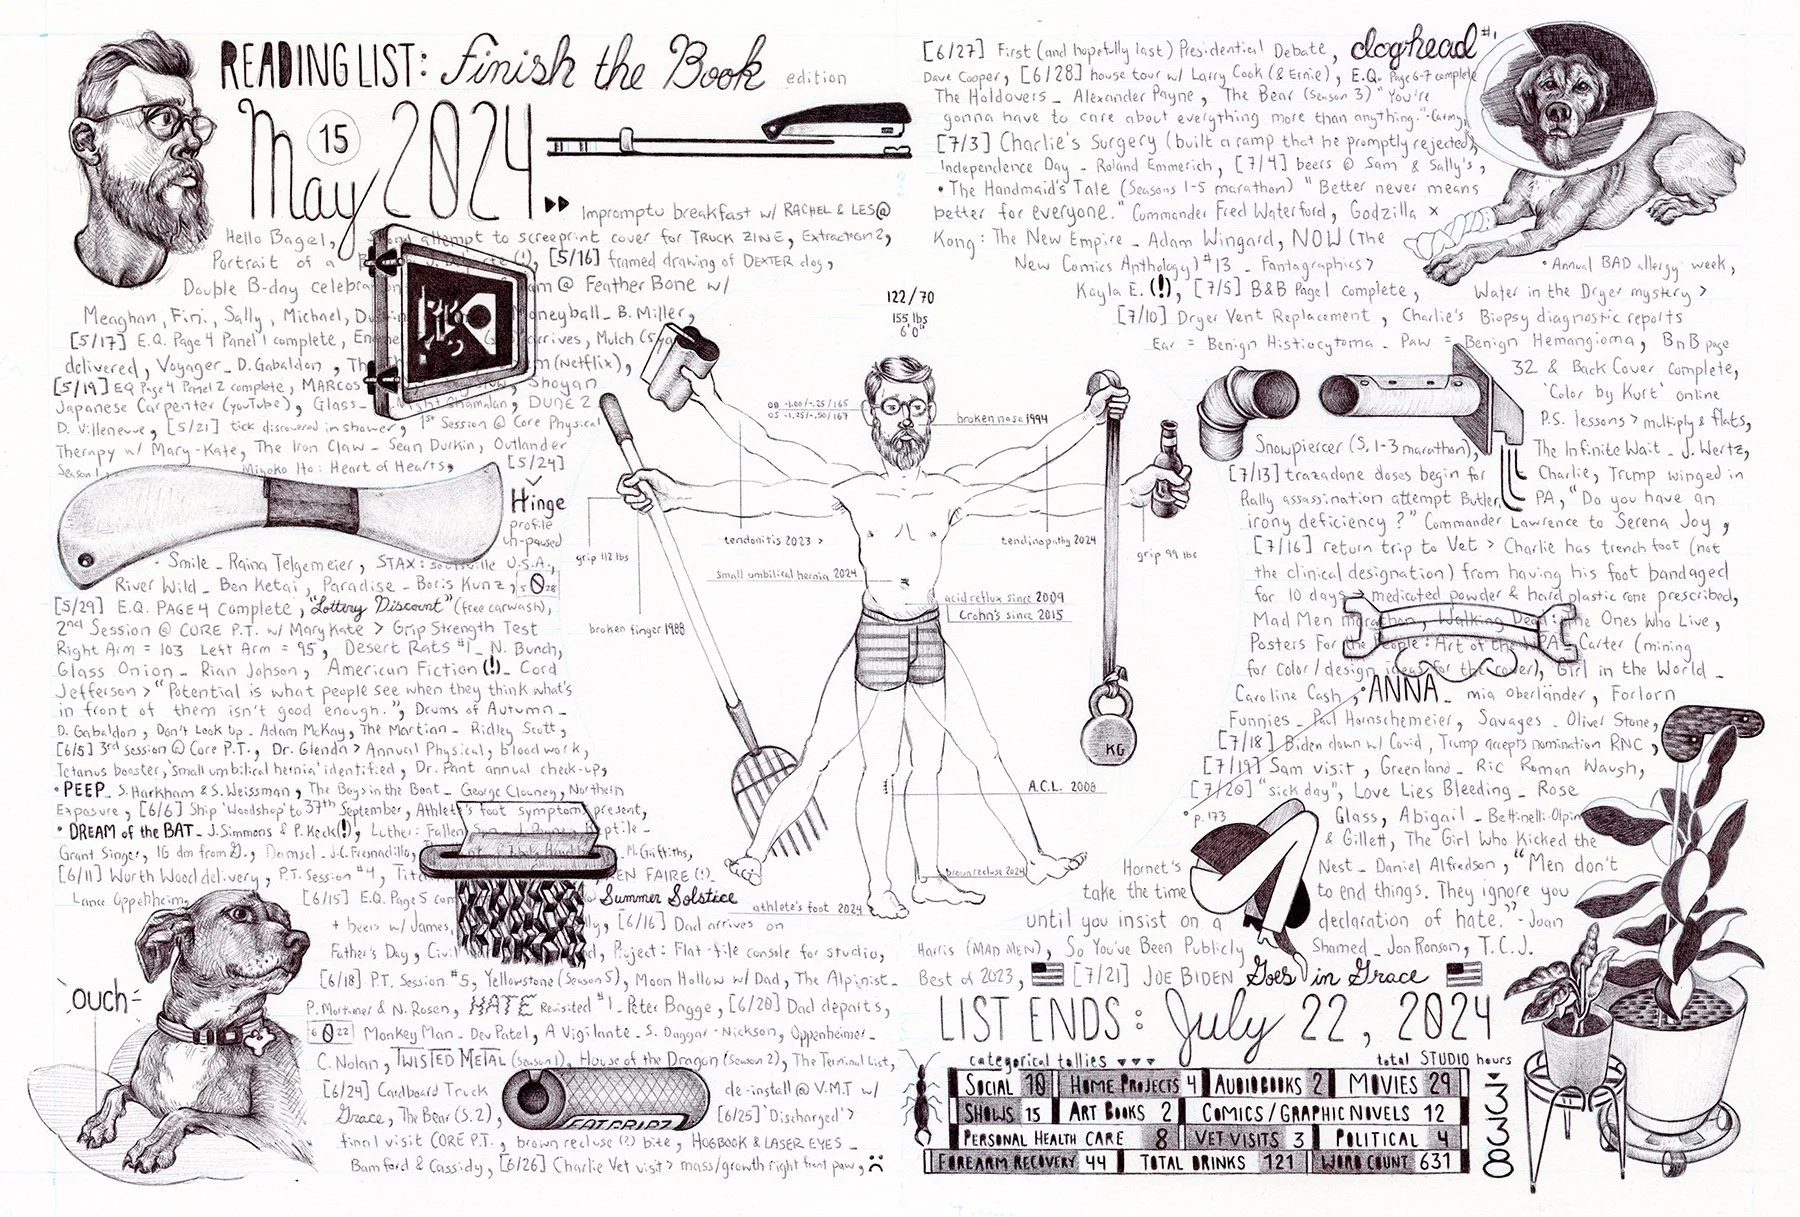 READING LIST: Finish the Book edition
May 15 2024
Impromptu breakfast w/ RACHEL & LES @
Hello Bagel, attempt to screeprint cover for TRUCK ZINE, Extraction 2,
Portrait of a [5/16] framed drawing of DEXTER dog,
Double B-day celebration @ Feather Bone w/
Meaghan, Fin, Sally, Michael, Moneyball _ B. Miller,
[5/17] E.Q. Page 4 Panel 1 complete, arrives, Mulch (5 ya
delivered, Voyager _ D. Gabaldon, (Netflix),
[5/19] EQ Page 4 Panel 2 complete, MARCOS Shogan
Japanese Carpenter (YouTube), Glass _ M. Night Shamalan, DUNE 2
D. Villeneuve, [5/21] tick discovered in shower, 1st Session @ Core Physical
Therapy w/ Mary-Kate, The Iron Claw _ Sean Durkin, Outlander
Season 1, Miyoko Ito: Heart of Hearts, [5/24]
Hinge
profile
un-paused
Smile _ Raina Telgemeier, STAX: Soulsville U.S.A.,
River Wild _ Ben Ketai, Paradise _ Boris Kunz, 5 0 28
[5/29] E.Q. PAGE 4 complete, "Lottery Discount" (free carwash),
2nd Session @ CORE P.T. w/ Mary Kate > Grip Strength Test
Right Arm = 103 Left Arm = 95, Desert Rats #1 _ N. Bunch,
Glass Onion _ Rian Johson, American Fiction (!) _ Cord
Jefferson > "Potential is what people see when they think what's
in front of them isn't good enough.", Drums of Autumn _
D. Gabaldon, Don't Look Up _ Adam McKay, The Martian _ Ridley Scott,
[6/5] 3rd session @ Core P.T., Dr. Glenda > Annual Physical, blood work,
Tetanus booster, 'Small umbilical hernia' identified, Dr. Pant annual check-up,
• PEEP _ S. Harkham & S. Weissman, The Boys in the Boat _ George Clooney, Northern
Exposure, [6/6] Ship 'Woodshop' to 37th September, Athlete's foot symptoms present,
• DREAM of the BAT _ J. Simmons & P. Keck (!), Luther: Fallen Sun _ J. Payne, Reptile _
Grant Singer, 16 dm from G., Damsel _ J.C. Fresnadillo, M. Griffiths,
[6/11] Worth Wood delivery, P.T. Session #4, EN FAIRE (!) _
Lance Oppenheim, [6/15] E.Q. Page 5 com Summer Solstice
+ beers w/ James, [6/16] Dad arrives on
Father's Day, Civil Project: Flat-file console for studio,
[6/18] P.T. Session #5, Yellowstone (Season 5), Moon Hollow w/ Dad, The Alpinist _
P. Mortimer & N. Rosen, HATE Revisited #1 _ Peter Bagge, [6/20] Dad departs,
6 0 22 Monkey Man _ Dev Patel, A Vigilante _ S. Daggar-Nickson, Oppenheimer _
C. Nolan, TWISTED METAL (season 1), House of the Dragon (Season 2), The Terminal List,
[6/24] Cardboard Truck de-install @ V.M.T w/
Grace, The Bear (S. 2), [6/25] 'Discharged' >
final visit CORE P.T., brown recluse (?) bite, HOGBOOK & LASER EYES _
Bamford & Cassidy, [6/26] Charlie Vet visit > mass/growth right front paw,
ouch
FATGRIPZ
122/70
155 lbs
6'0"
OD -1.00/-.25/165
OS -1.25/-.50/167
broken nose 1994
grip 112 lbs
tendonitis 2023 >
tendinopathy 2024
grip 99 lbs
small umbilical hernia 2024
acid reflux since 2009
Crohn's since 2015
broken finger 1988
KG
A.C.L. 2008
brown recluse 2024
athlete's foot 2024
[6/27] First (and hopefully last) Presidential Debate, doghead #1
Dave Cooper, [6/28] house tour w/ Larry Cook (& Ernie), E.Q. Page 6-7 complete
The Holdovers _ Alexander Payne, The Bear (Season 3) "You're
gonna have to care about everything more than anything." -Carmy,
[7/3] Charlie's Surgery (built a ramp that he promptly rejected),
Independence Day _ Roland Emmerich, [7/4] beers @ Sam & Sally's,
• The Handmaid's Tale (Seasons 1-5 marathon) "Better never means
better for everyone." Commander Fred Waterford, Godzilla x
Kong: The New Empire _ Adam Wingard, NOW (The
New Comics Anthology) #13 _ Fantagraphics > • Annual BAD allergy week,
Kayla E. (!), [7/5] B&B Page 1 complete, Water in the Dryer mystery >
[7/10] Dryer Vent Replacement, Charlie's Biopsy diagnostic reports
Ear = Benign Histiocytoma _ Paw = Benign Hemangioma, BnB page
32 & Back Cover complete,
'Color by Kurt' online
P.S. lessons > multiply & flats,
Snowpiercer (S. 1-3 marathon), The Infinite Wait _ J. Wertz,
[7/13] trazadone doses begin for Charlie, Trump winged in
Rally assassination attempt Butler, PA, "Do you have an
irony deficiency?" Commander Lawrence to Serena Joy,
[7/16] return trip to Vet > Charlie has trench foot (not
the clinical designation) from having his foot bandaged
for 10 days > medicated powder & hard plastic cone prescribed,
Mad Men marathon, Walking Dead: The Ones Who Live,
Posters For the People: Art of the WPA _ Carter (mining
for color/design ideas for the cover), Girl in the World _
Caroline Cash, • ANNA _ mia oberländer, Forlorn
Funnies _ Paul Hornschemeier, Savages _ Oliver Stone,
[7/18] Biden down w/ Covid, Trump accepts nomination RNC,
[7/19] Sam visit, Greenland _ Ric Roman Waugh,
[7/20] "sick day", Love Lies Bleeding _ Rose
• p. 173 Glass, Abigail _ Bettinelli-Olpin
& Gillett, The Girl Who Kicked the
Hornet's Nest _ Daniel Alfredson, "Men don't
take the time to end things. They ignore you
until you insist on a declaration of hate." - Joan
Harris (MAD MEN), So You've Been Publicly Shamed _ Jon Ronson, T.C.J.
Best of 2023, [7/21] JOE BIDEN Goes in Grace
LIST ENDS: July 22, 2024
categorical tallies total STUDIO hours
SOCIAL 10 HOME PROJECTS 4 AUDIOBOOKS 2 MOVIES 29
SHOWS 15 ART BOOKS 2 COMICS/GRAPHIC NOVELS 12
PERSONAL HEALTH CARE 8 VET VISITS 3 POLITICAL 4
FOREARM RECOVERY 44 TOTAL DRINKS 121 WORD COUNT 631